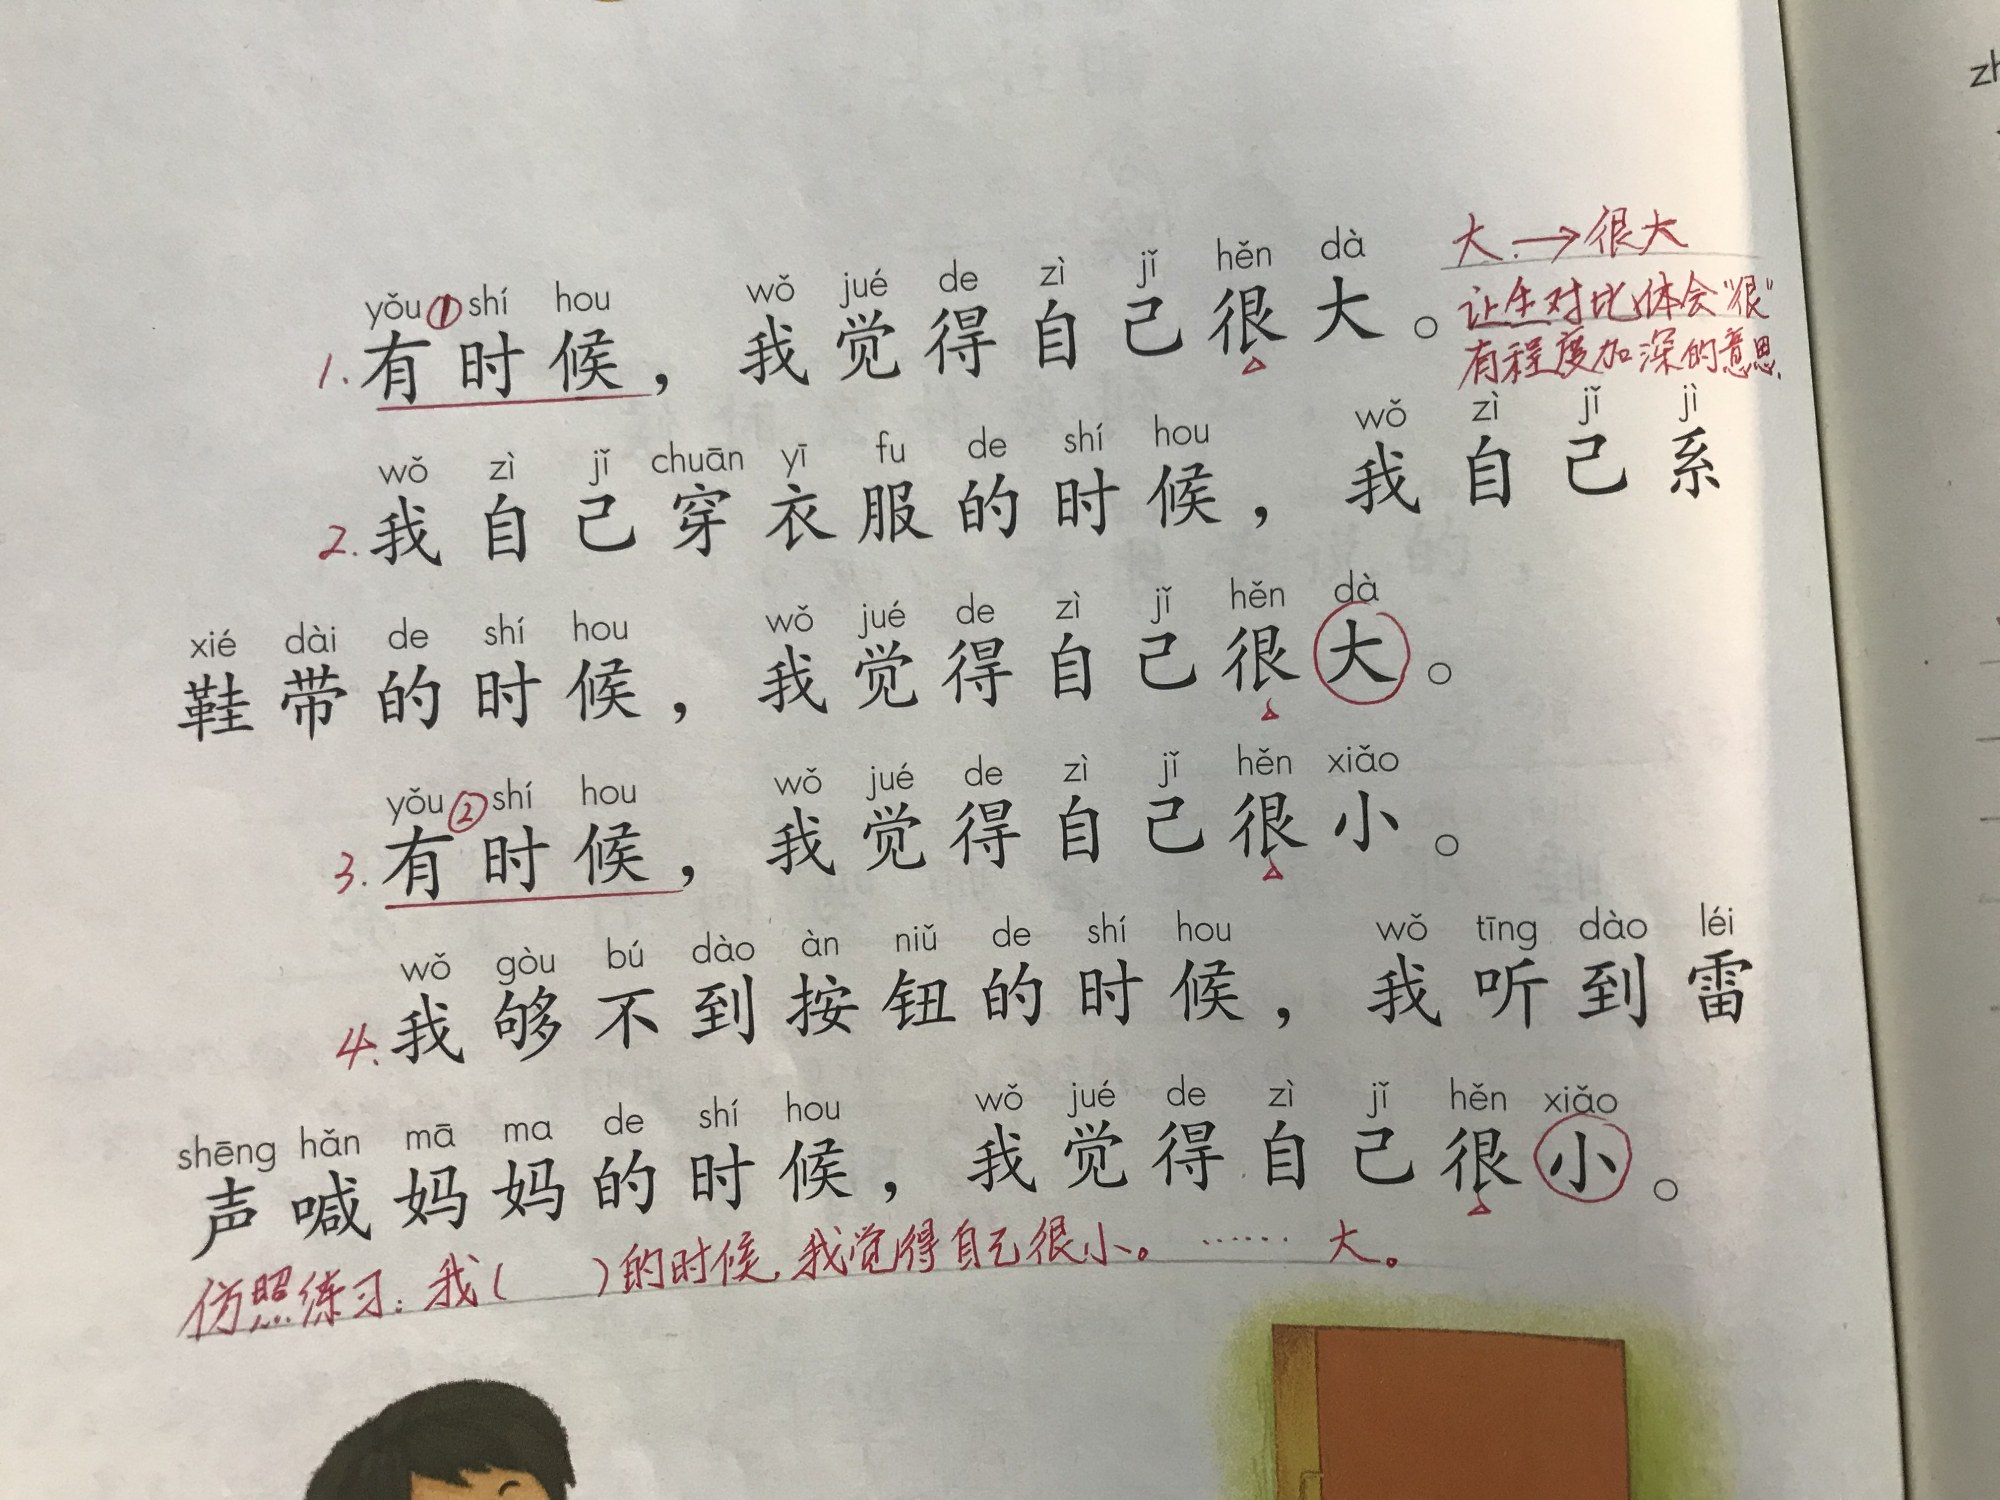 大→很大
yǒu ① shí hou wǒ jué de zì jǐ hěn dà
1. 有时候，我觉得自己很大。
让生对比，体会"很"
有程度加深的意思.
wǒ zì jǐ chuān yī fu de shí hou wǒ zì jǐ jì
2. 我自己穿衣服的时候，我自己系
xié dài de shí hou wǒ jué de zì jǐ hěn dà
鞋带的时候，我觉得自己很大。
yǒu ② shí hou wǒ jué de zì jǐ hěn xiǎo
3. 有时候，我觉得自己很小。
wǒ gòu bú dào àn niǔ de shí hou wǒ tīng dào léi
4. 我够不到按钮的时候，我听到雷
shēng hǎn mā ma de shí hou wǒ jué de zì jǐ hěn xiǎo
声喊妈妈的时候，我觉得自己很小。
仿照练习：我（ ）的时候，我觉得自己很小。…… 大。
zh